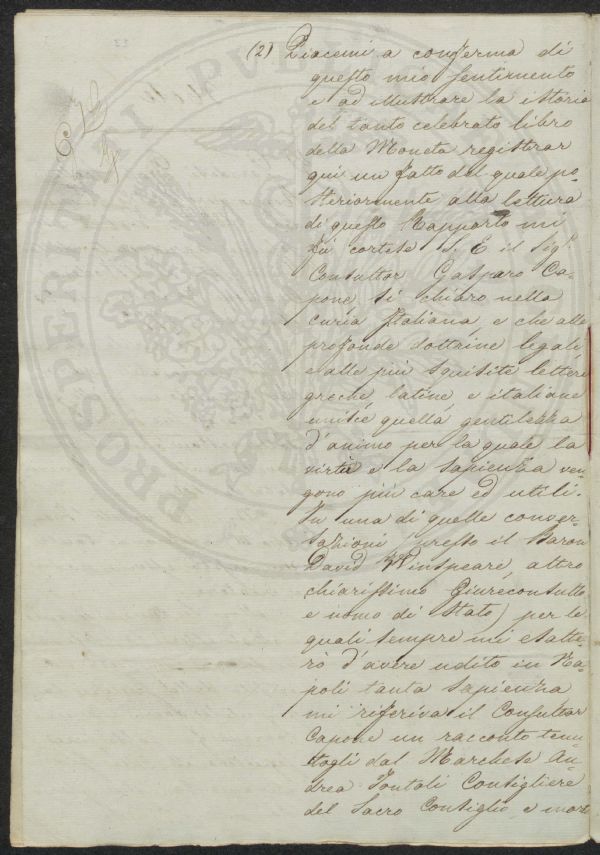 (2) Piacemi a conferma di
questo mio sentimento
e ad illustrare la istoria
del tanto celebrato libro
della Moneta registrar
qui un fatto del quale po-
steriormente alla lettura
di questo Rapporto mi
fu cortese S. E. il Sigr.
Consultor Gasparo Ca-
pone, sì chiaro nella
curia Italiana, e che alle
profonde dottrine legali,
e alle più squisite lettere
greche, latine, e italiane
unisce quella gentilezza
d'animo per la quale la
virtù e la sapienza ven-
gono più care ed utili.
In una di quelle conver-
sazioni presso il Baron
David Winspeare, altro
chiarissimo Giureconsulto
e uomo di Stato) per le
quali sempre mi esalte-
rò d'avere udito in Na-
poli tanta sapienza
mi riferiva il Consultor
Capone un racconto tenu-
togli dal Marchese An-
drea Tontoli Consigliere
del Sacro Consiglio, e mort
PROSPERITATI PVBL